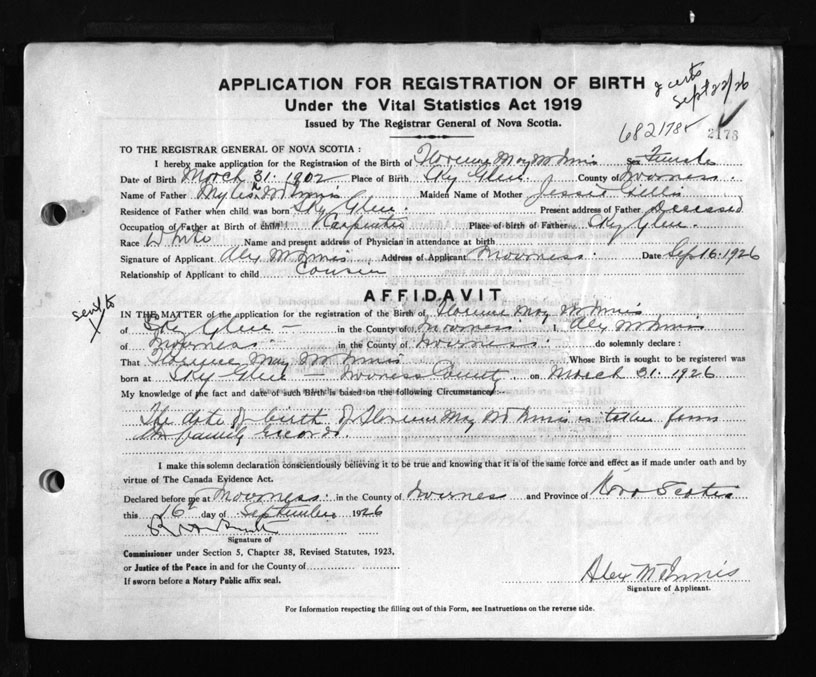 APPLICATION FOR REGISTRATION OF BIRTH
Under the Vital Statistics Act 1919
Issued by The Registrar General of Nova Scotia.
Sept 22/26
682178
2178
TO THE REGISTRAR GENERAL OF NOVA SCOTIA :
I hereby make application for the Registration of the Birth of Florence May McInnis Sex Female
Date of Birth March 31. 1902 Place of Birth Sky Glen. County of Inverness.
Name of Father McInnis Maiden Name of Mother Jessie Gillis
Residence of Father when child was born Sky Glen. Present address of Father Deceased
Occupation of Father at Birth of child Carpenter Place of birth of Father Sky Glen.
Race White Name and present address of Physician in attendance at birth
Signature of Applicant Alex McInnis Address of Applicant Inverness. Date Sep 16. 1926
Relationship of Applicant to child Cousin
AFFIDAVIT
IN THE MATTER of the application for the registration of the Birth of Florence May McInnis
of Sky Glen - in the County of Inverness I, Alex McInnis
of Inverness in the County of Inverness. do solemnly declare :
That Florence May McInnis , Whose Birth is sought to be registered was
born at Sky Glen - Inverness County. on March 31. 1926
My knowledge of the fact and date of such Birth is based on the following Circumstances:-
The date of birth of Florence May McInnis is taken from
the family records.
I make this solemn declaration conscientiously believing it to be true and knowing that it is of the same force and effect as if made under oath and by
virtue of The Canada Evidence Act.
Declared before me at Inverness. in the County of Inverness and Province of Nova Scotia
this 16th day of September 1926
Signature of
Commissioner under Section 5, Chapter 38, Revised Statutes, 1923,
or Justice of the Peace in and for the County of
If sworn before a Notary Public affix seal.
Alex McInnis
Signature of Applicant.
For Information respecting the filling out of this Form, see Instructions on the reverse side.